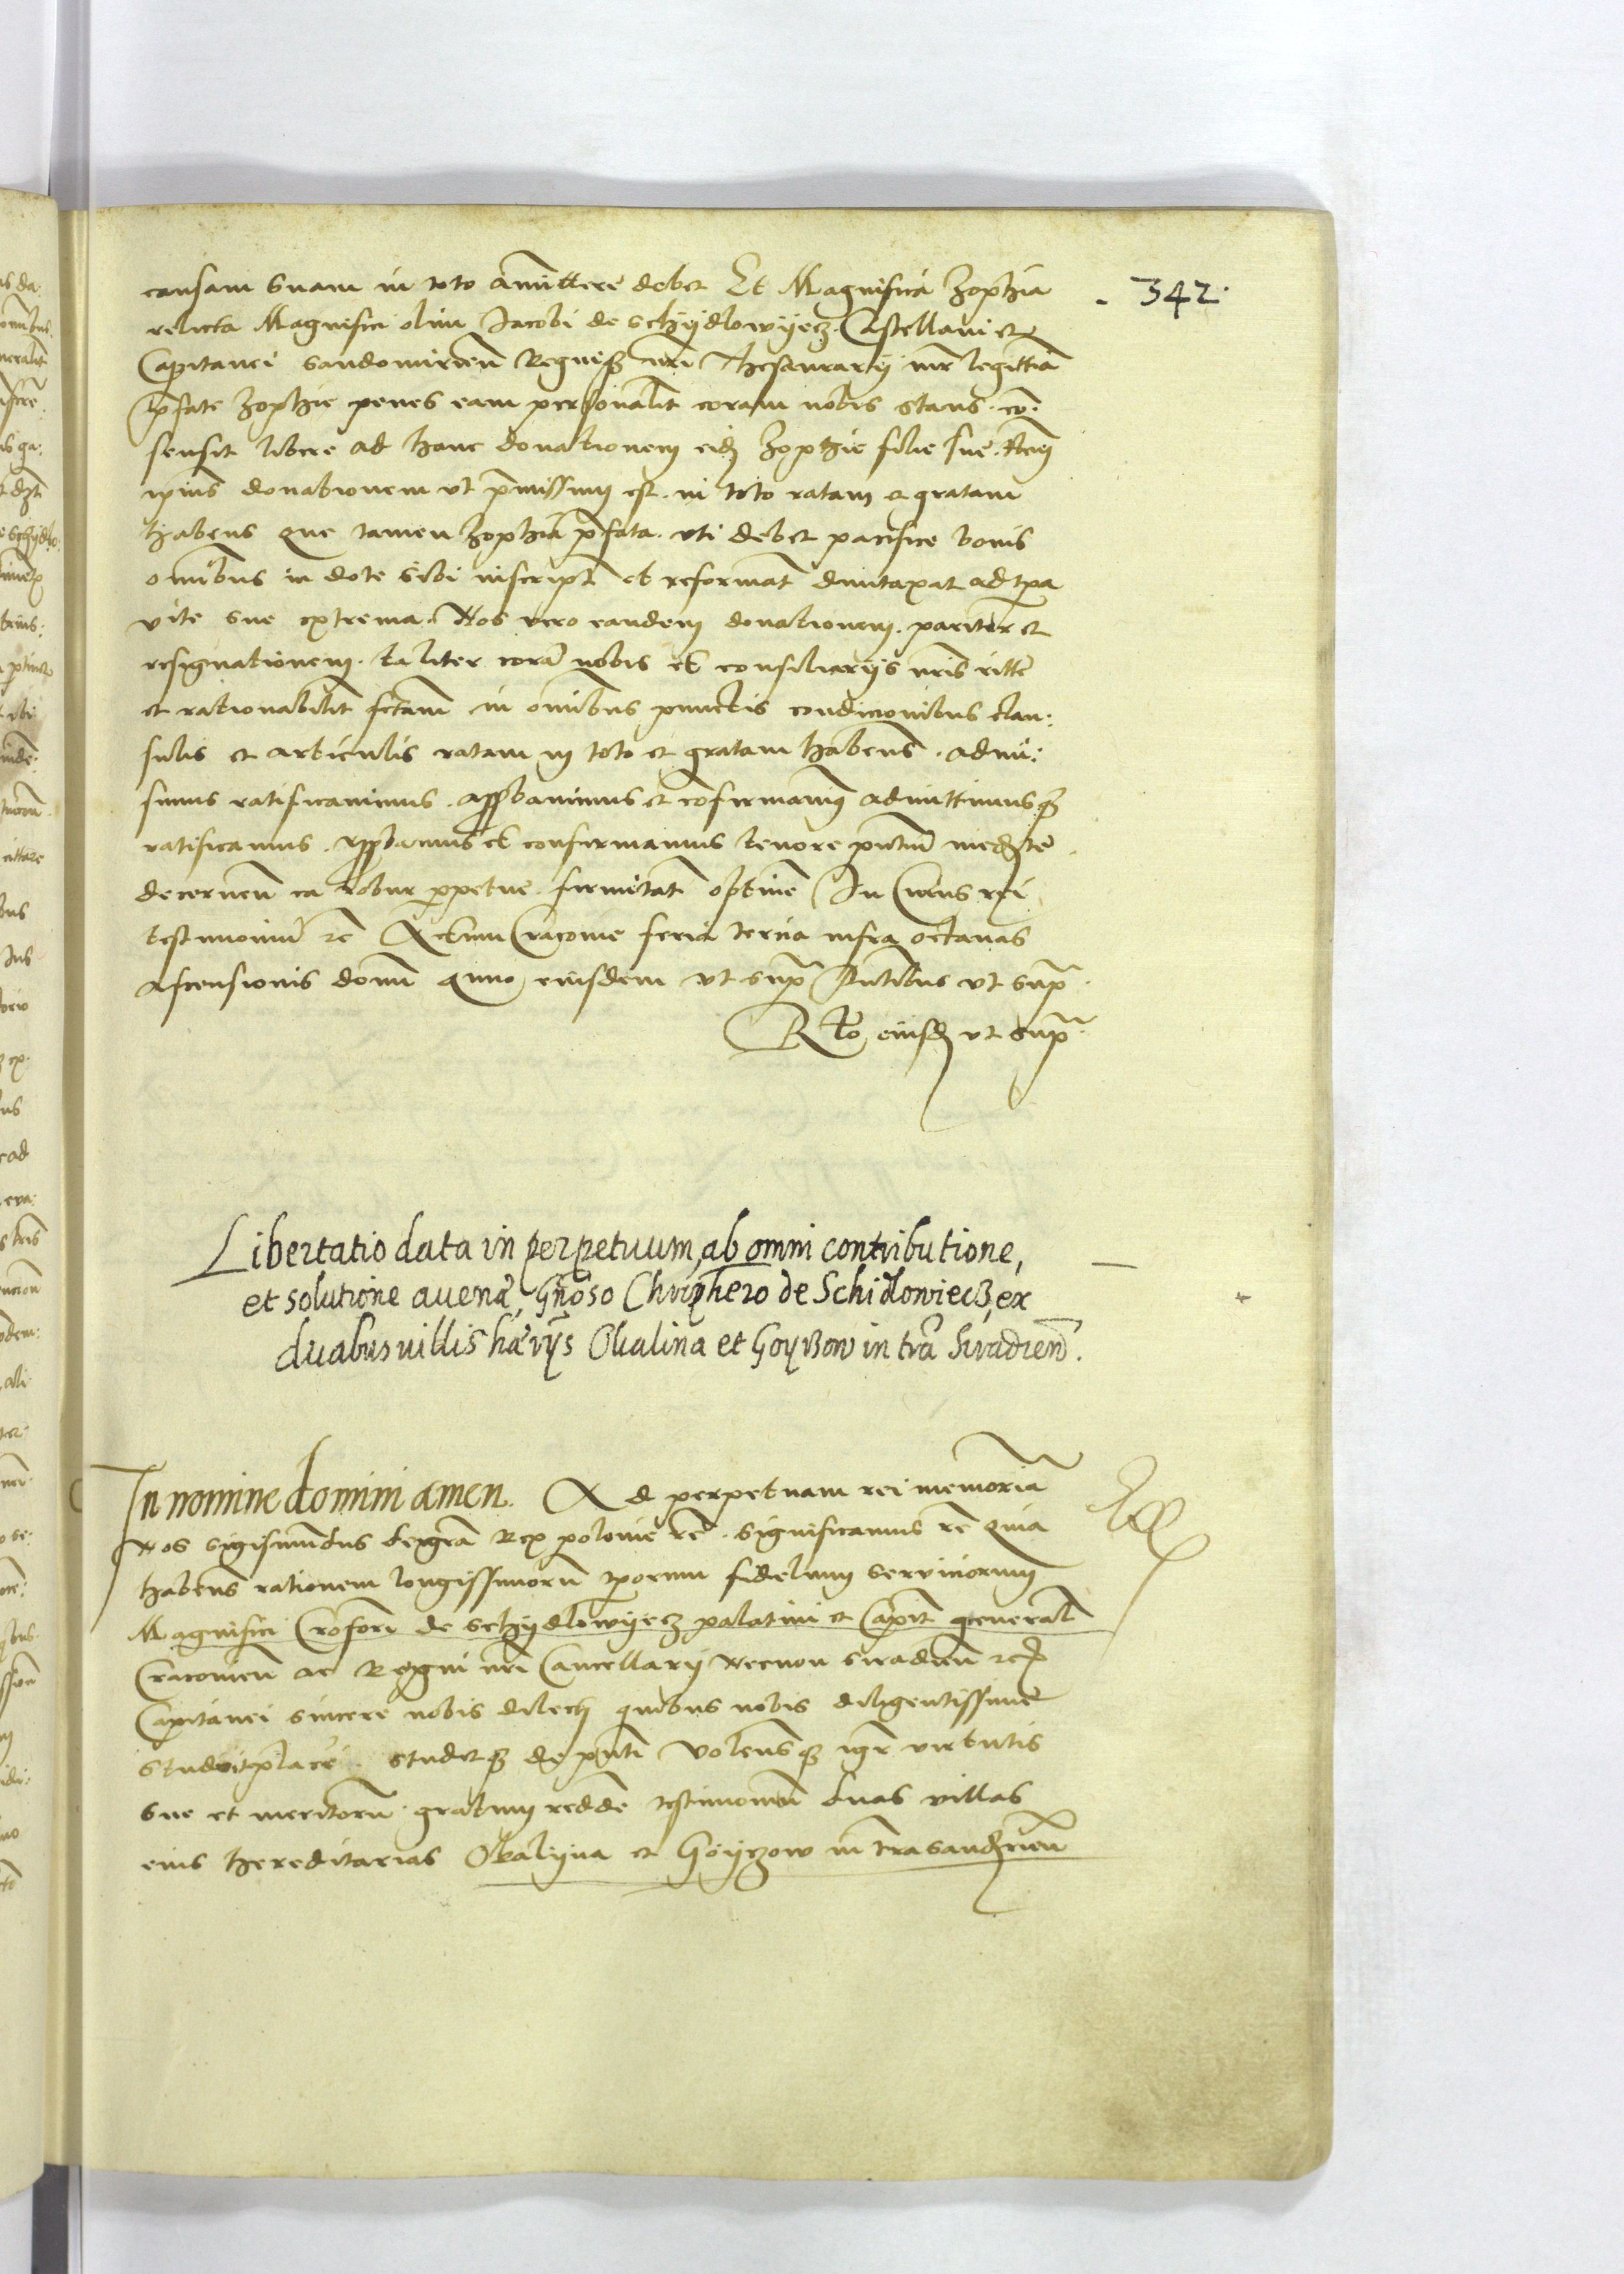 342.
causam suam in toto amittere debet Et Magnifica Zophia
relicta Magnifici olim Jacobi de Schÿdlowÿecz Castellani et
Capitanei Sandomirien Regniqz nri Thesaurarij mr legittia
pfate Zophie penes eam personalit coram nobis stans. co:
sensit libere ad hanc donationem eidz Zophie filie sue. Rem
ipius donationem ut pmissum est. in toto ratam et gratam
habens que tamen Zophia pfata. uti debet pacifice bonis
omibus in dote sibi inscript et reformat duntaxat ad tpa
vite sue extrema. Nos vero eandem donationem. pariter et
resignationem. taliter cora nobis et consiliarijs nris ritte
et rationabilit fctam in omibus punctis condicionibus clau:
sulis et articulis ratam in toto et gratam habens. admi:
simus ratificavimus. approbavimus et cofirmavim admittimusqz
ratificamus. approbamus et confirmamus tenore pntium mediante
decernen ea robur ppetue firmitati optine In Cuius rei
testimoniu rc Actum Cracovie feria tercia infra octavas
ascensionis domi anno eiusdem ut supra Pntibus ut supra.
Rlto eiusdz ut supra.
Libertatio data in perpetuum, ab omni contributione,
et solutione avenæ, Gnoso Chriphero de Schidlowiecz, ex
duabus villis hærijs Obalina et Goyßow in tra Siradien.
In nomine domini amen. Ad perpetuam rei memoria
Nos Sigismundus dei gra Rex polonie rc. Significamus rc quia
habens rationem longissimorum tporum fidelium serviciorum
Magnifici Crofori de Schÿdlowÿecz palatini et Capit general
Cracovien ac Regni nri Cancellarij Necnon Siradien rc
Capitanei sincere nobis dilecti quibus nobis diligentissime
studuit place. studetqz de pnti Volensqz igr virtutis
sue et meritorum. gratum redde testimonium duas villas
eius hereditarias Obalyna et Goÿczow in tra Sandomirien